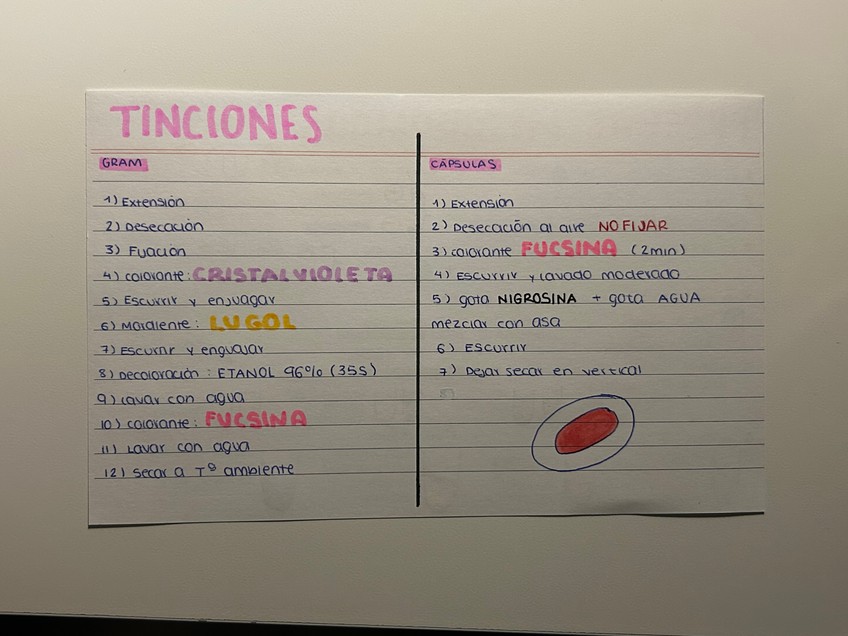 TINCIONES
GRAM
1) Extensión
2) Desecación
3) Fijación
4) colorante: CRISTAL VIOLETA
5) Escurrir y enjuagar
6) Mordiente: LUGOL
7) Escurrir y enguajar
8) Decoloración: ETANOL 96% (35s)
9) Lavar con agua
10) colorante: FUCSINA
11) Lavar con agua
12) Secar a Tº ambiente
CÁPSULAS
1) Extensión
2) Desecación al aire NO FIJAR
3) colorante FUCSINA (2min)
4) Escurrir y lavado moderado
5) gota NIGROSINA + gota AGUA
mezclar con asa
6) Escurrir
7) Dejar secar en vertical
8)